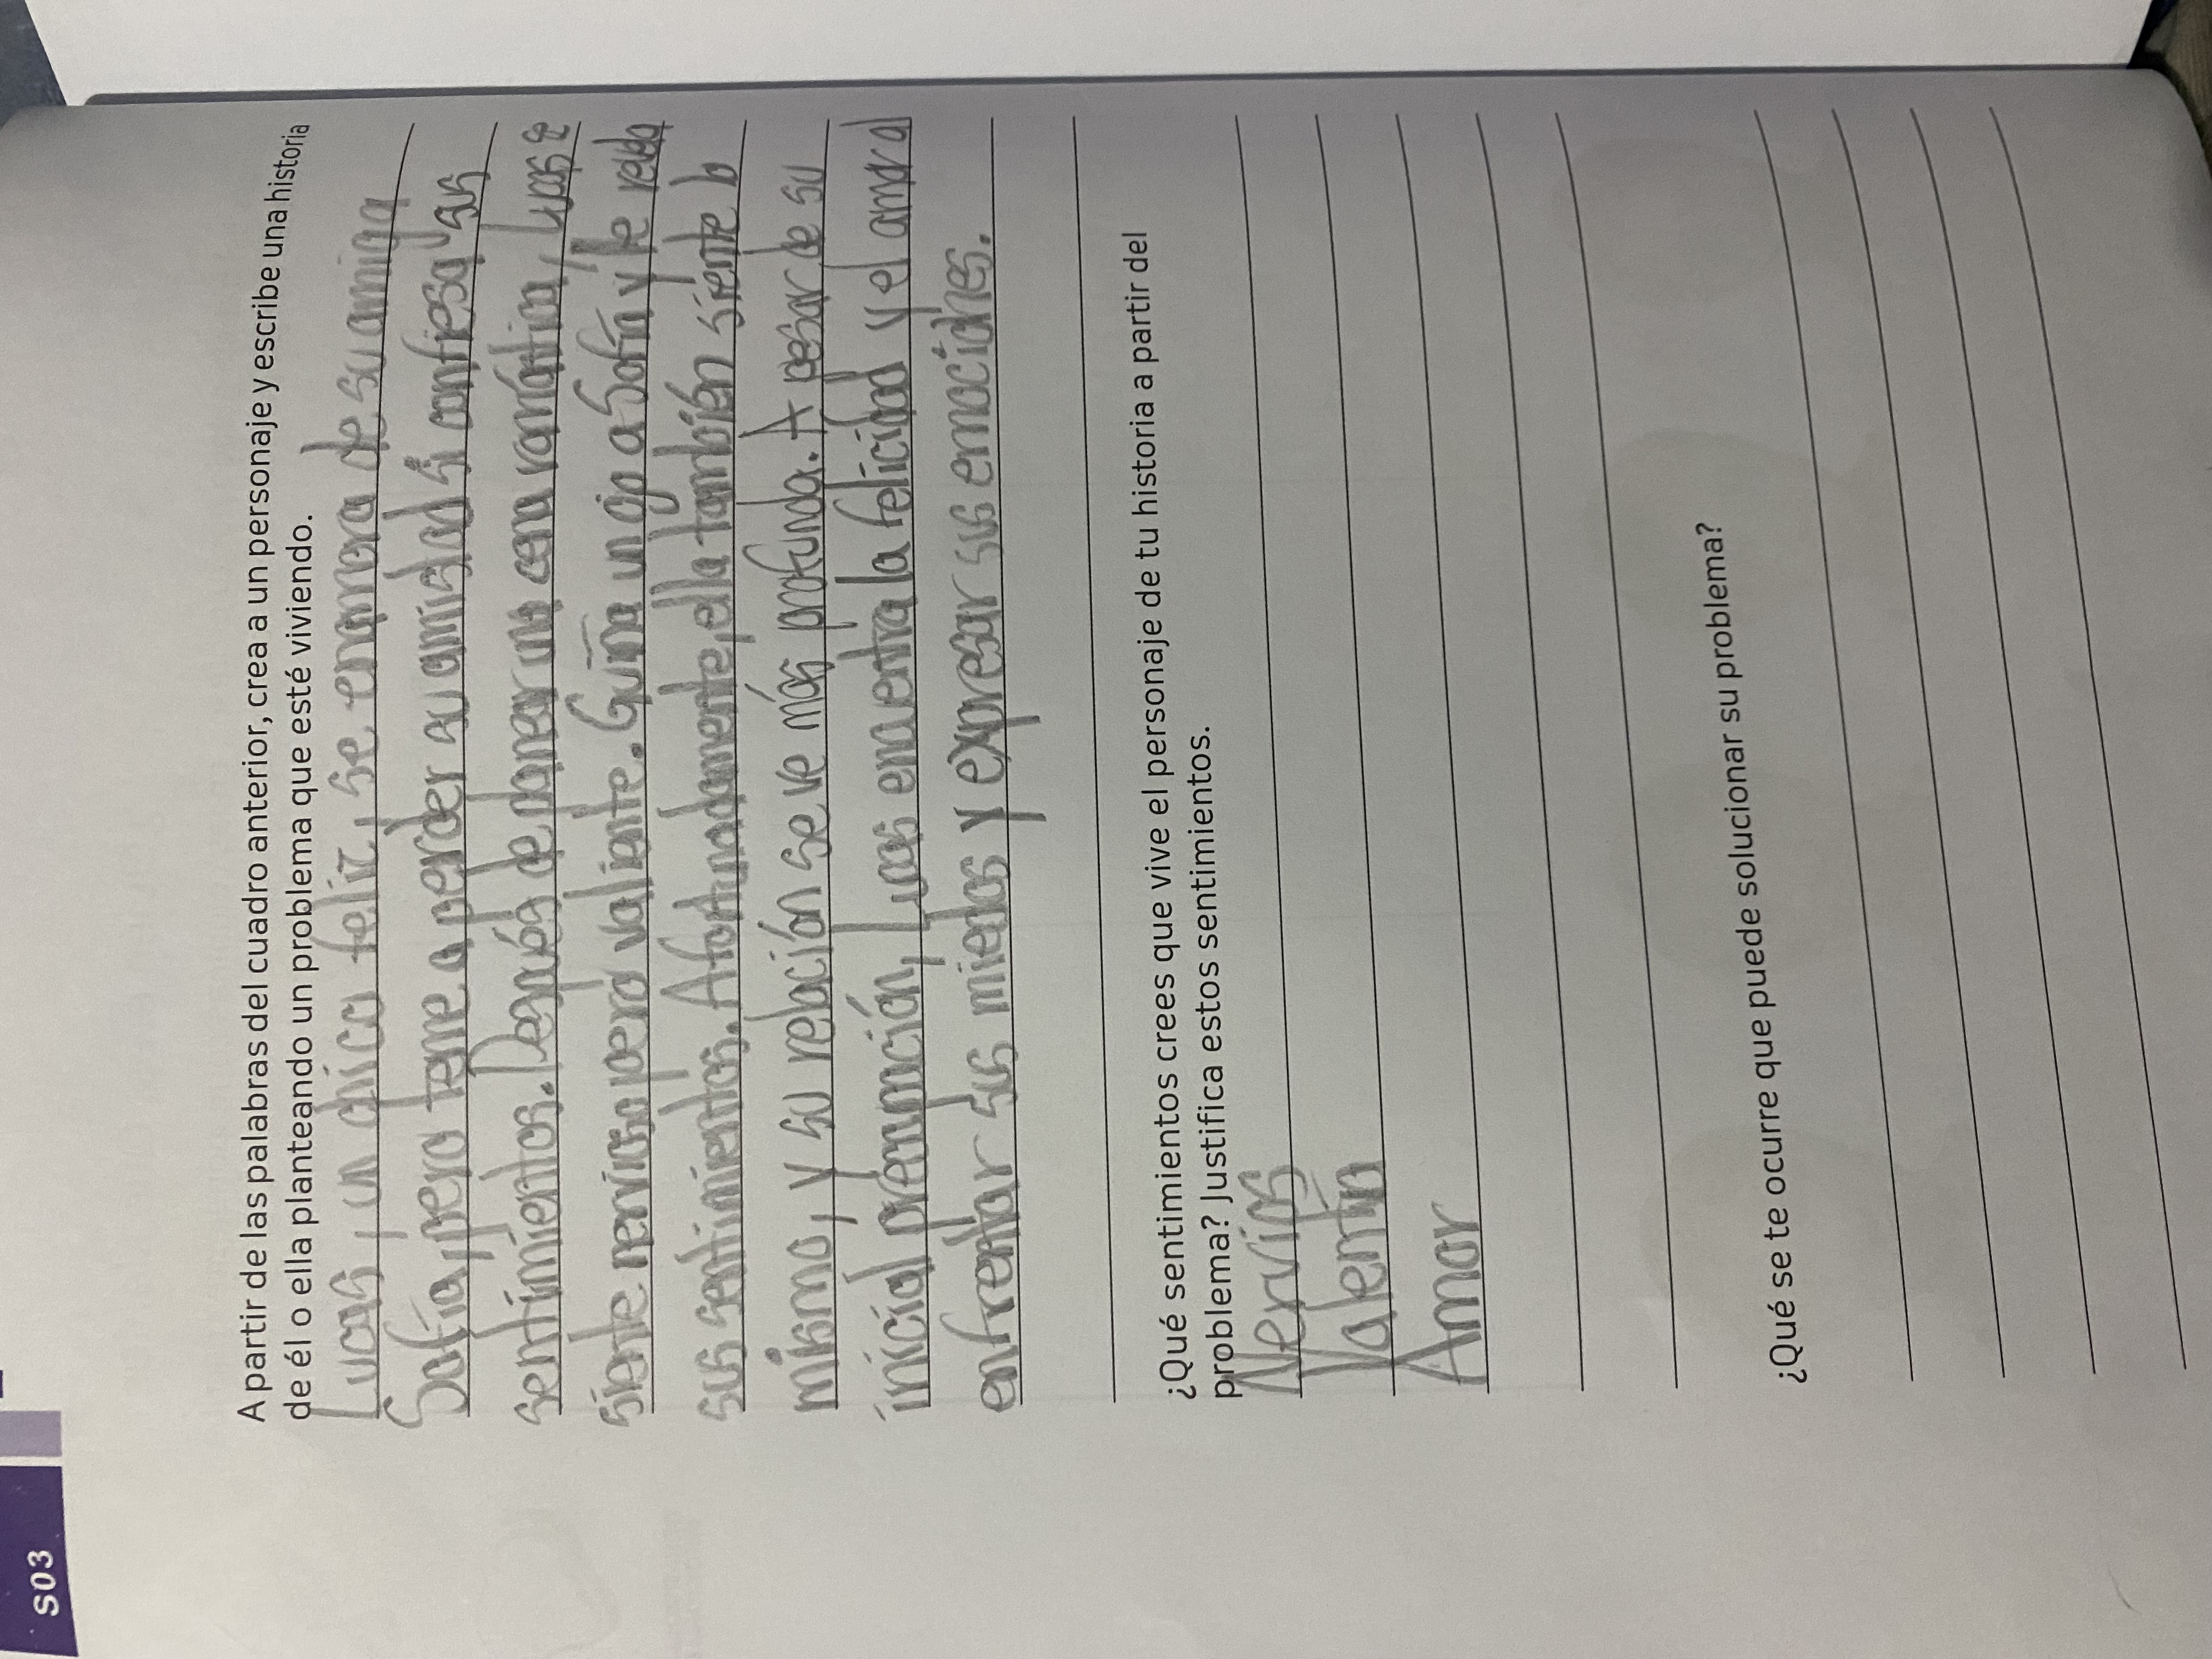 S03
A partir de las palabras del cuadro anterior, crea a un personaje y escribe una historia
de él o ella planteando un problema que esté viviendo.
Lucas, un chico feliz, se enamora de su amiga
Sofía, pero teme a perder su amistad si confiesa sus
sentimientos. Después de planear una cena romántica, Lucas se
siente nervioso pero valiente. Guiña un ojo a Sofía y le revela
sus sentimientos. Afortunadamente, ella también siente lo
mismo, y su relación se ve más profunda. A pesar de su
inicial preocupación, Lucas encuentra la felicidad y el amor al
enfrentar sus miedos y expresar sus emociones.
¿Qué sentimientos crees que vive el personaje de tu historia a partir del
problema? Justifica estos sentimientos.
Nervios
Valentía
Amor
¿Qué se te ocurre que puede solucionar su problema?